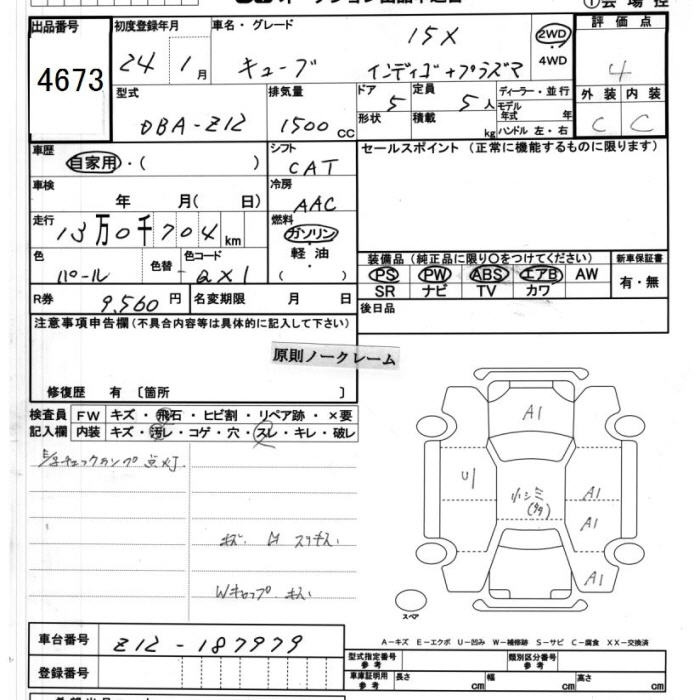 ①会場控
出品番号
4673
初度登録年月
24 1月
車名・グレード
15X
キューブ インディゴ+プラズマ
2WD
4WD
評価点
4
外装 内装
C C
型式
DBA-Z12
排気量
1500 CC
ドア 5
定員 5人
形状
積載 kg
ディーラー・並行
モデル年式 年
ハンドル 左・右
車歴
自家用・( )
シフト
CAT
セールスポイント (正常に機能するものに限ります)
車検
年 月( 日)
冷房
AAC
走行
13万0千704km
燃料
ガソリン
軽油
( )
色
パール
色替
色コード
QX1
装備品 (純正品に限り○をつけてください)
PS PW ABS エアB AW
SR ナビ TV カワ
新車保証書
有・無
R券 9,560円
名変期限 月 日
後日品
注意事項申告欄(不具合内容等は具体的に記入して下さい)
原則ノークレーム
修復歴 有 〔箇所 〕
検査員記入欄
FW キズ・飛石・ヒビ割・リペア跡・×要
内装 キズ・汚レ・コゲ・穴・スレ・キレ・破レ
チェックランプ点灯
Wキャップ キズ
A1
U1
小シミ
A1
A1
A1
スペア
A-キズ E-エクボ U-凹み W-補修跡 S-サビ C-腐食 XX-交換済
車台番号 Z12-187979
登録番号
型式指定番号 参考
類別区分番号 参考
車庫証明用 参考 長さ cm 幅 cm 高さ cm